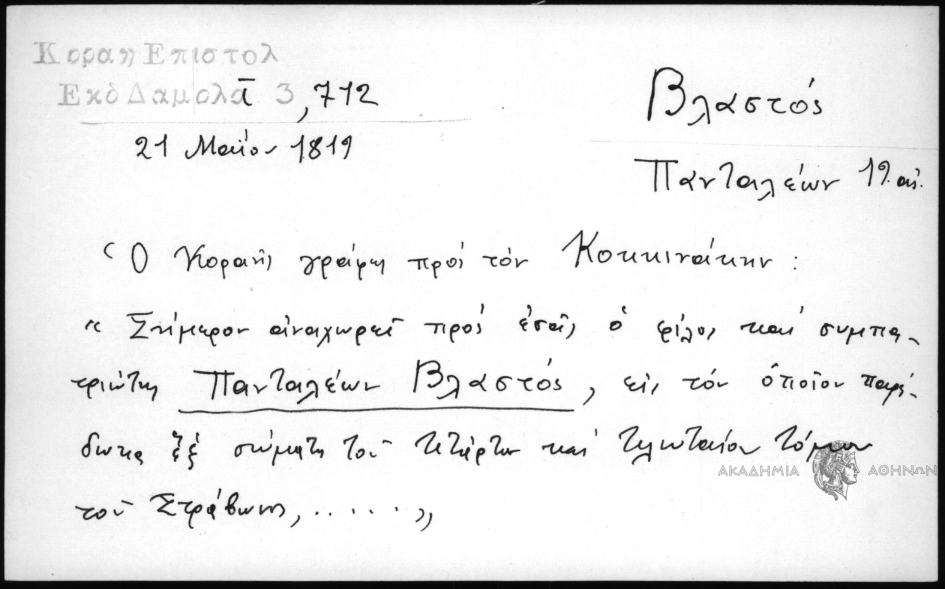 Κοραη Επιστολ
Εκδ Δαμαλα Ι 3, 712
21 Μαΐου 1819
Βλαστός
Πανταλέων 19. αἰ.
Ὁ Κοραῆς γράφει πρὸς τὸν Κοκκινάκην :
« Σήμερον ἀναχωρεῖ πρὸς ἐσᾶς ὁ φίλος καὶ συμπα-
τριώτης Πανταλέων Βλαστός, εἰς τὸν ὁποῖον παρέ-
δωκα ἓξ σώματα τοῦ τετάρτου καὶ τελευταίου τόμου
τοῦ Στράβωνος, ...... »
ΑΚΑΔΗΜΙΑ ΑΘΗΝΩΝ